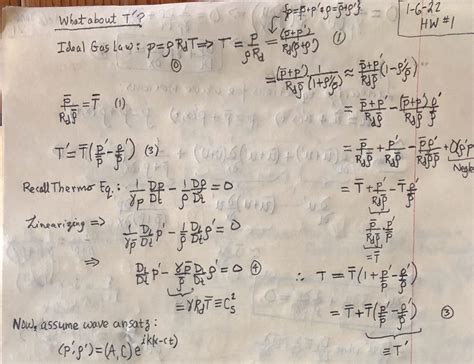 1-6-22
HW #1
What about T'?
{p = p̄+p' & ρ = ρ̄+ρ'}
Ideal Gas Law: p = ρ R_d T ⇒ T = p/(ρR_d) = (p̄+p')/(R_d(ρ̄+ρ')) (1)
⓪
= (p̄+p')/(R_d ρ̄) · 1/(1+ρ'/ρ̄) ≈ (p̄+p')/(R_d ρ̄) (1-ρ'/ρ̄)
p̄/(R_d ρ̄) = T̄ (1)
= (p̄+p')/(R_d ρ̄) - (p̄+p')/(R_d ρ̄) ρ'/ρ̄
T' = T̄(p'/p̄ - ρ'/ρ̄) (3)
= p̄/(R_d ρ̄) + p'/(R_d ρ̄) - p̄ρ'/(R_d ρ̄ρ̄) + O(ρ'p'
Neglec
Recall Thermo Eq.: 1/(γp) Dp/Dt - 1/ρ Dρ/Dt = 0
= T̄ + p'/(R_d ρ̄) - T̄ ρ'/ρ̄
= p̄/(R_d ρ̄) p'/p̄
Linearizing ⇒ 1/(γp̄) D₁/Dt p' - 1/ρ̄ D₁/Dt ρ' = 0
= T̄ p'/p̄
⇒ D₁/Dt p' - γp̄/ρ̄ D₁/Dt ρ' = 0 ④
∴ T = T̄(1+p'/p̄ - ρ'/ρ̄)
= γR_d T̄ ≡ C_s²
= T̄ + T̄(p'/p̄ - ρ'/ρ̄) ③
≡ T'
Now, assume wave ansatz:
(p', ρ') = (A, C) e^{ik(x-ct)}